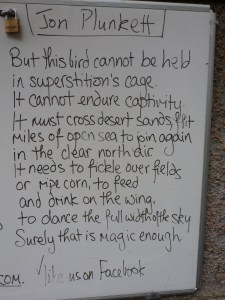 Jon Plunkett
But this bird cannot be held
in superstition's cage.
It cannot endure captivity.
It must cross desert sands,
miles of open sea to join again
in the clear north air.
It needs to fickle over fields
or ripe corn, to feed
and drink on the wing,
to dance the full width of the sky
Surely that is magic enough
like us on Facebook
COM.